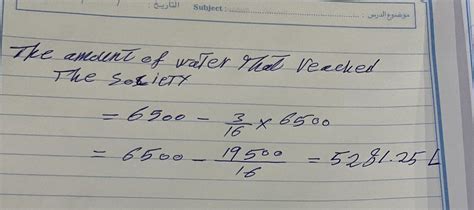 Subject : التاريخ : موضوع الدرس :
The amount of water that reached
The Society
= 6500 - 3/16 × 6500
= 6500 - 19500/16 = 5281.25 L